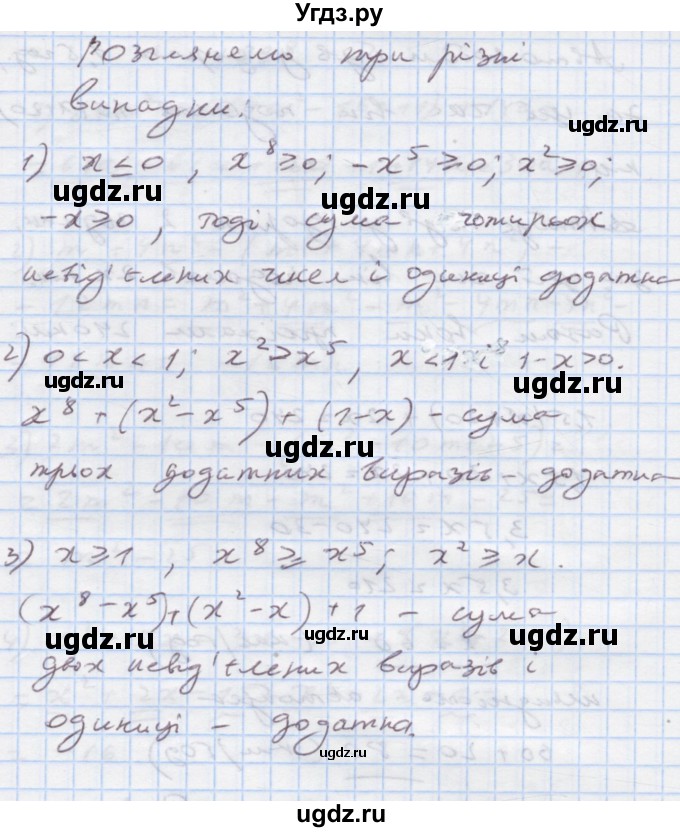 Угдз.ру
Розглянемо три різні
випадки:
ugdz.ru
1) x ≤ 0 , x⁸ ≥ 0; -x⁵ ≥ 0; x² ≥ 0;
ugdz.ru
-x ≥ 0 , тоді сума чотирьох
невід'ємних чисел і одиниці додатна
2) 0 < x < 1; x² > x⁵ , x < 1 і 1-x > 0.
ugdz.ru ugdz.ru
x⁸ + (x² - x⁵) + (1-x) - сума
ugdz.ru
трьох додатних виразів - додатна
3) x ≥ 1 , x⁸ ≥ x⁵; x² ≥ x.
ugdz.ru
(x⁸ - x⁵) + (x² - x) + 1 - сума
ugdz.ru ugdz.ru ugdz.ru
двох невід'ємних виразів і
одиниці - додатна.
ugdz.ru
ugdz.ru